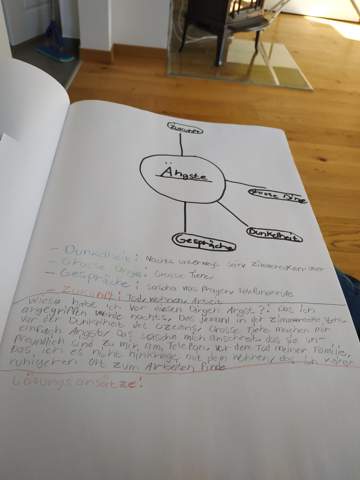 Zukunft
Ängste
Große Dinge
Dunkelheit
Gespräche
- Dunkelheit: Nachts unterwegs, Zimmerecken
- Große Dinge: Große Tiere
- Gespräche: Sascha was fragen, Telefonate
- Zukunft: Tod meiner, Arbeit
Wieso habe ich vor diesen Dingen Angst?: Das ich
angegriffen werde nachts. Das jemand in der Zimmerecke
vor der Dunkelheit des Ozeans. Große Tiere machen mir
einfach Angst. Das Sascha mich anschreit, das sie un-
freundlich sind zu mir am Telefon. Vor dem Tod meiner Familie,
Das, ich es nicht hinkriege mit dem das ich keinen
ruhigeren Ort zum Arbeiten finde
Lösungsansätze: